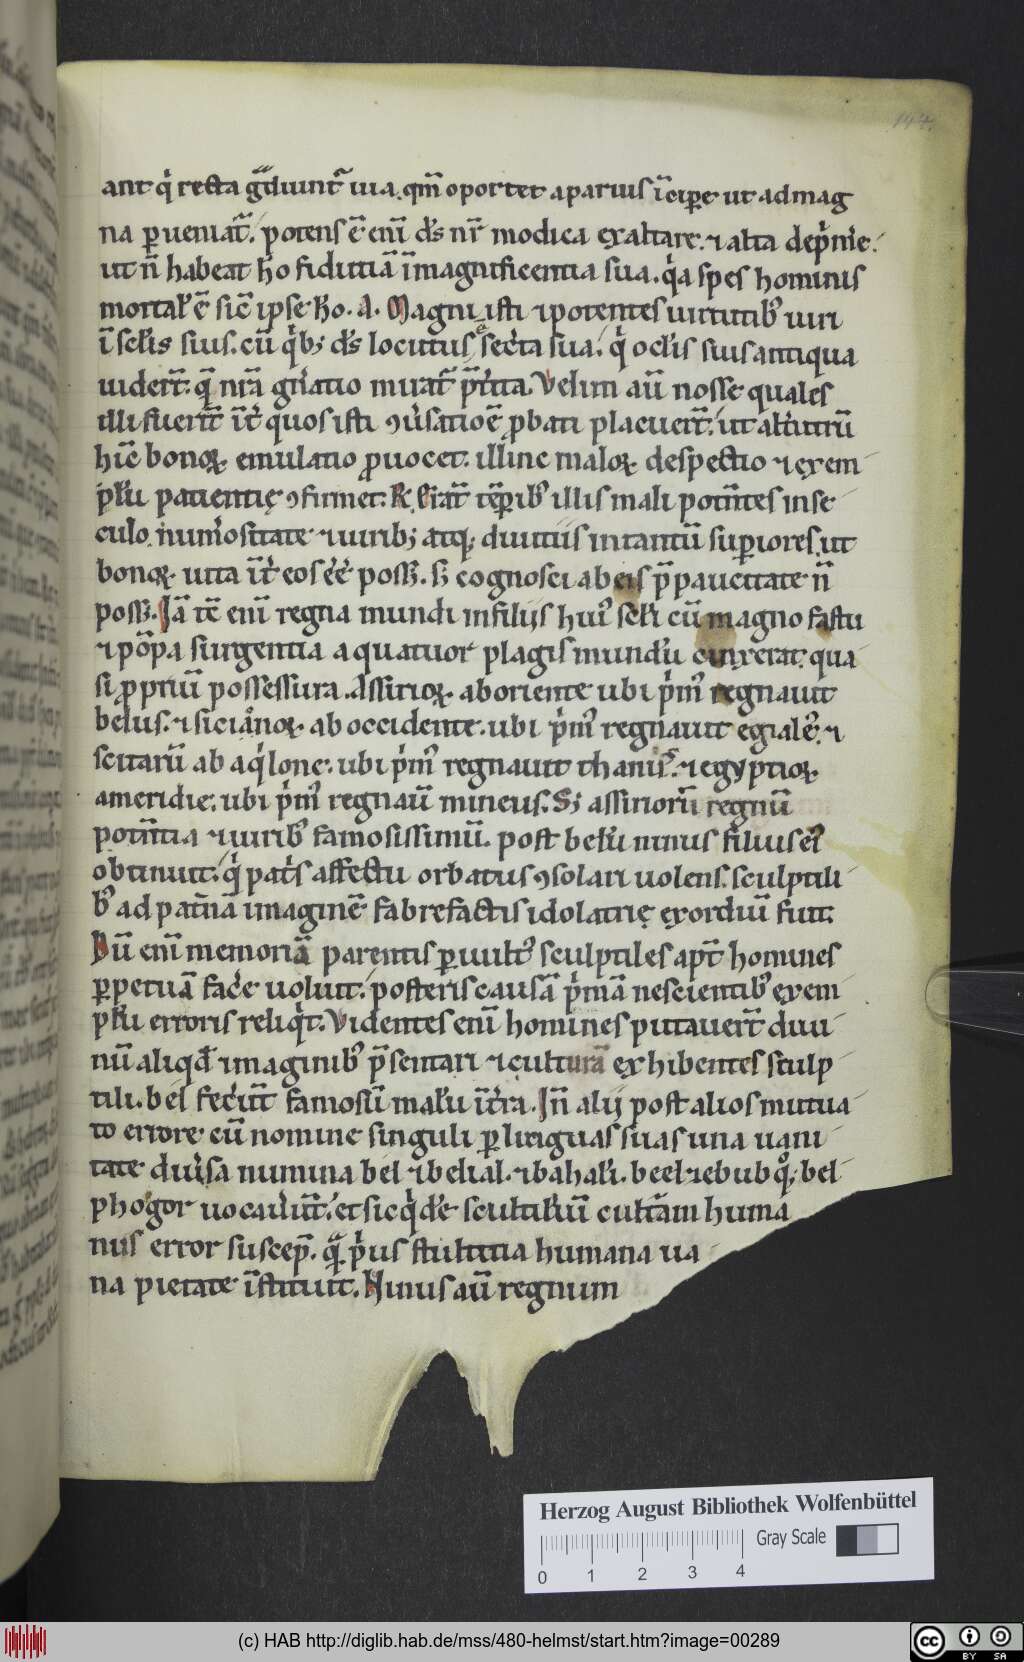 144
ant q̇ recta g̅diunt̅ uia. qm̅ oportet aparuis i̅cipe ut ad mag
na ꝑueniat̅. potens e̅ eni̅ d̅s nr̅ modica exaltare. ⁊ alta dep̅m̅e.
ut n̅ habeat h̊o fidutia̅ i̅ magnificentia sua. q̇a spes hominis
mortal̅ e̅ sic̅ ipse h̊o. A. Magni isti ⁊ potentes uirtutib᷒ uiri
i̅ sc̅lis suis. cu̅ q̇bꝫ d̅s locutus secr̅ta sua. q̇ oc̅lis suis antiqua
uider̅t. q̅ nr̅a gn̅atio mirat̅ p̅t̅ita. Velim au̅ nosse quales
illi fuer̅t i̅t̅ quos isti ꝯu̅satioe̅ ꝓbati placuer̅t. ut alt̅utru̅
hi̅c bonoꝝ emulatio ꝓuocet. illinc maloꝝ despectio ⁊ exem
pl̅u patientię ꝯfirmet. R̷ Erat̅ te̅ꝑib᷒ illis mali potn̅tes in se
culo. num̅ositate ⁊ uiribꝫ atqꝫ diuitiis intantu̅ suꝑiores. ut
bonoꝝ uita i̅t̅ eos e̅e̅ poss̅. sꝫ cognosci ab eis p̅ paucitate n̅
poss̅. Ia̅ te̅ eni̅ regna mundi in filiis hui᷒ sc̅li cu̅ magno fastu
⁊ po̅pa surgentia a quatuor plagis mundu̅ cinxerat. qua
si ꝓpriu̅ possessura. Assirioꝝ ab oriente ubi p̅m᷒ regnauit
belus. ⁊ sicianoꝝ ab occidente. ubi p̅m᷒ regnauit egiale᷒. ⁊
scitaru̅ ab aq̇lone. ubi p̅m᷒ regnauit thanis᷒. ⁊ egyptioꝝ
a meridie. ubi p̅m᷒ regnau̅ mineus. Sꝫ assirioru̅ regnu̅
potn̅tia ⁊ uirib᷒ famosissimu̅. post belu̅ ninus filius ei᷒
obtinuit. q̇ pat̅s affectu orbatus ꝯsolari uolens. sculptili
b᷒ ad patn̅a̅ imagine̅ fabrefactis idolatrię exordiu̅ fuit.
Du̅ eni̅ memoria̅ parentis ꝑ uult᷒ sculptiles apt̅ homines
ꝑpetua̅ fac̅e uoluit. posteris causa̅ p̅ma̅ nescientib᷒ exem
pl̅u erroris reliq̇t. Videntes eni̅ homines putauer̅t diui
nu̅ aliqd̅ imaginib᷒ p̅sentari ⁊ cultura̅ exhibentes sculp
tili. bel fec̅ut̅ famosu̅ malu̅ i̅ t̅ra. In̅ alij post alios mutua
to errore cu̅ nomine singuli ꝑ linguas suas una uani
tate diu̅sa numina bel ⁊ belial. ⁊ bahali. beelzebub qꝫ bel
phogor uocau̅ut̅. et sic q̇de̅ scultiliu̅ cultura̅m huma
nus error suscep̅. q̅ p̅us stultitia humana ua
na pietate i̅stituit. Ninus au̅ regnum
Herzog August Bibliothek Wolfenbüttel
Gray Scale
0 1 2 3 4
(c) HAB http://diglib.hab.de/mss/480-helmst/start.htm?image=00289
cc BY SA